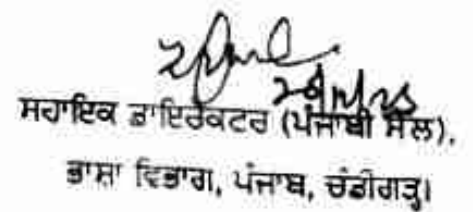 ਸਹਾਇਕ ਡਾਇਰੈਕਟਰ (ਪੰਜਾਬੀ ਸੈੱਲ),
ਭਾਸ਼ਾ ਵਿਭਾਗ, ਪੰਜਾਬ, ਚੰਡੀਗੜ੍ਹ।